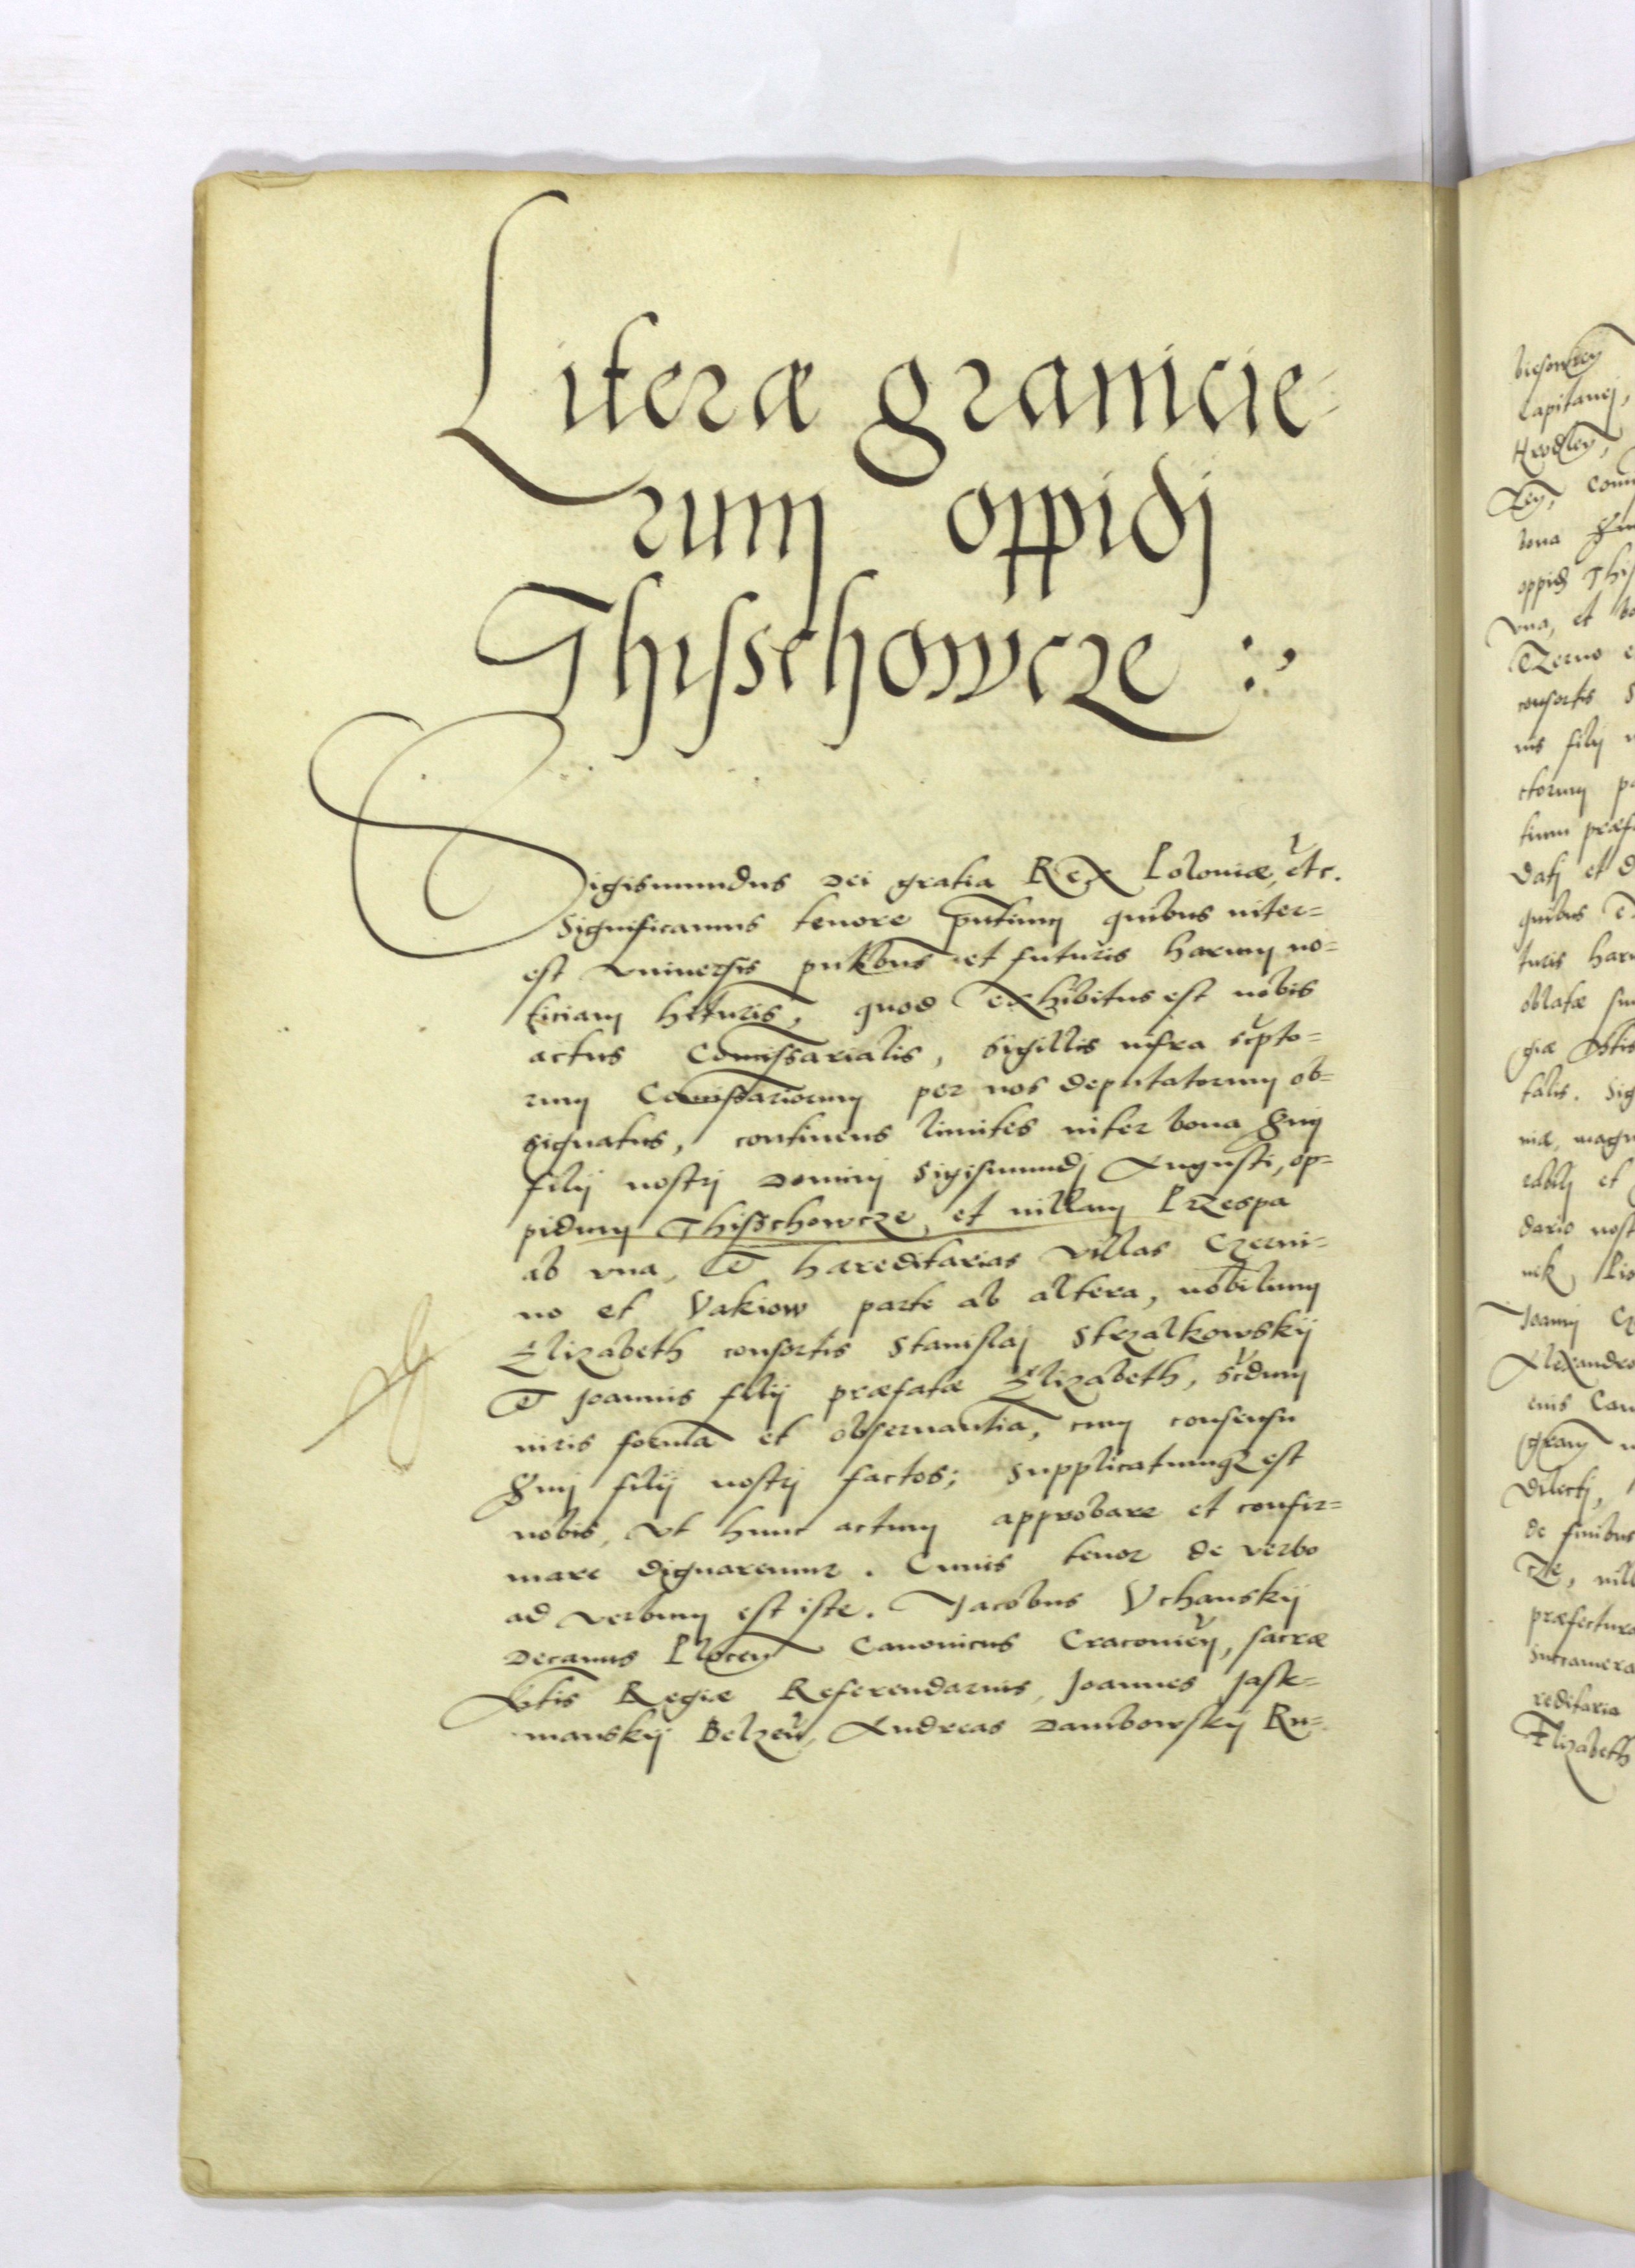 Literæ granicie-
rum oppidj
Thisschowcze :,
Sigismundus Dei gratia Rex Poloniæ, etc.
Significamus tenore pntium quibus inter=
est vniuersis pntibus et futuris harum no=
ticiam hituris, quod exhibitus est nobis
actus Comissarialis, sigillis infra scpto=
rum Comissariorum per nos deputatorum ob=
signatus, continens limites inter bona Smi
filij nostrj Dominj Sigismundj Augusti, op=
pidum Thisschowcze, et villam Przespa
ab vna, Et hæreditarias villas Czerni=
no et Vakiow parte ab altera, nobilium
Elizabeth consortis Stanislaj Strzalkowskij
Et Joannis filij præfatæ Elizabeth, scdum
iuris forma et obseruantia, cum consensu
Smj filij nostrj factos; Supplicatumq est
nobis, vt hunc actum approbare et confir=
mare dignaremur. Cuius tenor de verbo
ad verbum est iste. Jacobus Vchanskij
Decanus Plocen Canonicus Cracouien, sacræ
Mtis Regiæ Referendarius, Joannes Jaste=
manskij Belzen, Andreas Dambowskij Ru=
biesowien
Capitanej,
Hrodlen,
bona
oppid
vna, et
Czerno
consortis
nis filij
ctorum
Datj et
quibus
turis
oblatæ
talis.
niæ,
dario
nik
Joannj
Alexandro
Dilectj,
de finibus
præfectura
reditaria
Elizabeth